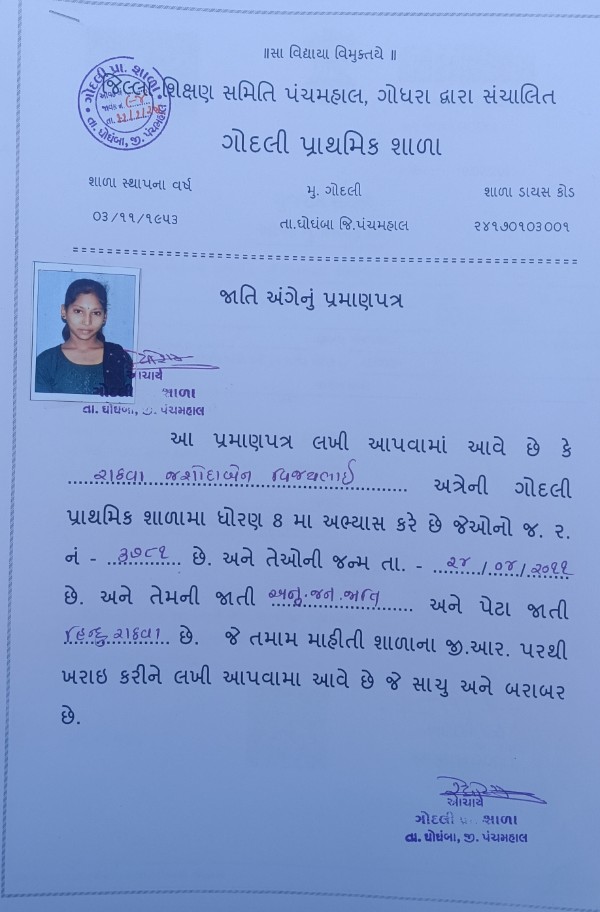 ॥સા વિદ્યાયા વિમુક્તયે ॥
ગોદલી પ્રા. શાળા
તા. ઘોઘંબા, જી. પંચમહાલ
જિલ્લા શિક્ષણ સમિતિ પંચમહાલ, ગોધરા દ્વારા સંચાલિત
ગોદલી પ્રાથમિક શાળા
શાળા સ્થાપના વર્ષ મુ. ગોદલી શાળા ડાયસ કોડ
૦૩/૧૧/૧૯૫૩ તા.ઘોઘંબા જિ.પંચમહાલ ૨૪૧૭૦૧૦૩૦૦૧
જાતિ અંગેનું પ્રમાણપત્ર
આચાર્ય
ગોદલી શાળા
તા. ઘોઘંબા, જી. પંચમહાલ
આ પ્રમાણપત્ર લખી આપવામાં આવે છે કે
રાઠવા જશોદાબેન વિજયભાઈ અત્રેની ગોદલી
પ્રાથમિક શાળામા ધોરણ 8 મા અભ્યાસ કરે છે જેઓનો જ. ર.
નં - ૩૭૮૧ છે. અને તેઓની જન્મ તા. - ૨૪/૦૪/૨૦૧૧
છે. અને તેમની જાતી અનુ.જન.જાતિ અને પેટા જાતી
હિન્દુ રાઠવા છે. જે તમામ માહીતી શાળાના જી.આર. પરથી
ખરાઇ કરીને લખી આપવામા આવે છે જે સાચુ અને બરાબર
છે.
આચાર્ય
ગોદલી પ્રા. શાળા
તા. ઘોઘંબા, જી. પંચમહાલ